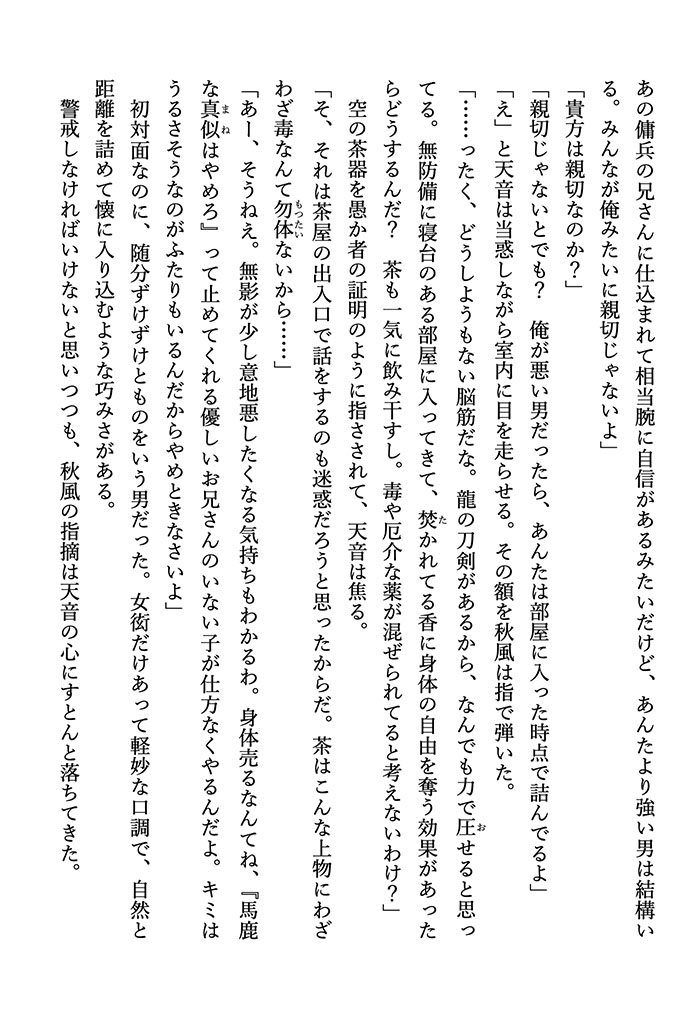 あの傭兵の兄さんに仕込まれて相当腕に自信があるみたいだけど、あんたより強い男は結構い
る。みんなが俺みたいに親切じゃないよ」
「貴方は親切なのか？」
「親切じゃないとでも？　俺が悪い男だったら、あんたは部屋に入った時点で詰んでるよ」
「え」と天音は当惑しながら室内に目を走らせる。その額を秋風は指で弾いた。
「……ったく、どうしようもない脳筋だな。龍の刀剣があるから、なんでも力で圧せると思っ
てる。無防備に寝台のある部屋に入ってきて、焚かれてる香に身体の自由を奪う効果があった
らどうするんだ？　茶も一気に飲み干すし。毒や厄介な薬が混ぜられてると考えないわけ？」
空の茶器を愚か者の証明のように指さされて、天音は焦る。
「そ、それは茶屋の出入口で話をするのも迷惑だろうと思ったからだ。茶はこんな上物にわざ
わざ毒なんて勿体ないから……」
「あー、そうねえ。無影が少し意地悪したくなる気持ちもわかるわ。身体売るなんてね、『馬鹿
な真似はやめろ』って止めてくれる優しいお兄さんのいない子が仕方なくやるんだよ。キミは
うるさそうなのがふたりもいるんだからやめときなさいよ」
初対面なのに、随分ずけずけとものをいう男だった。女衒だけあって軽妙な口調で、自然と
距離を詰めて懐に入り込むような巧みさがある。
警戒しなければいけないと思いつつも、秋風の指摘は天音の心にすとんと落ちてきた。